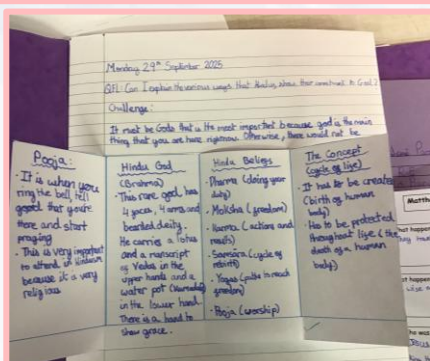 Monday 29th September 2025
QFL: Can I explain the various ways that Hindus show their commitment to God?
Challenge:
It must be Gods that is the most important because god is the main
thing that you have rightnow. Otherwise, there would not be
Pooja:
· It is when you
ring the bell, tell
good that you're
there and start
praying
· This is very important
to attend in Hinduism
because it is very
religious
Hindu God
(Brahma)
· This rare god, has
4 faces, 4 arms and
bearded deity.
He carries a lotus
and a manuscript
of Vedas in the
upper hands and a
water pot
in the lower hand.
There is a hand to
show grace.
Hindu Beliefs
· Dharma (doing your
duty)
· Moksha (freedom)
· Karma (actions and
results)
· Samsara (cycle of
rebirth)
· Yogas (paths to reach
freedom)
· Pooja (worship)
The Concept
(cycle of life)
· It has to be created
(birth of human
body)
· Has to be protected
throughout life (the
death of a human
body)
Matth
hat happen
They have
hat happened